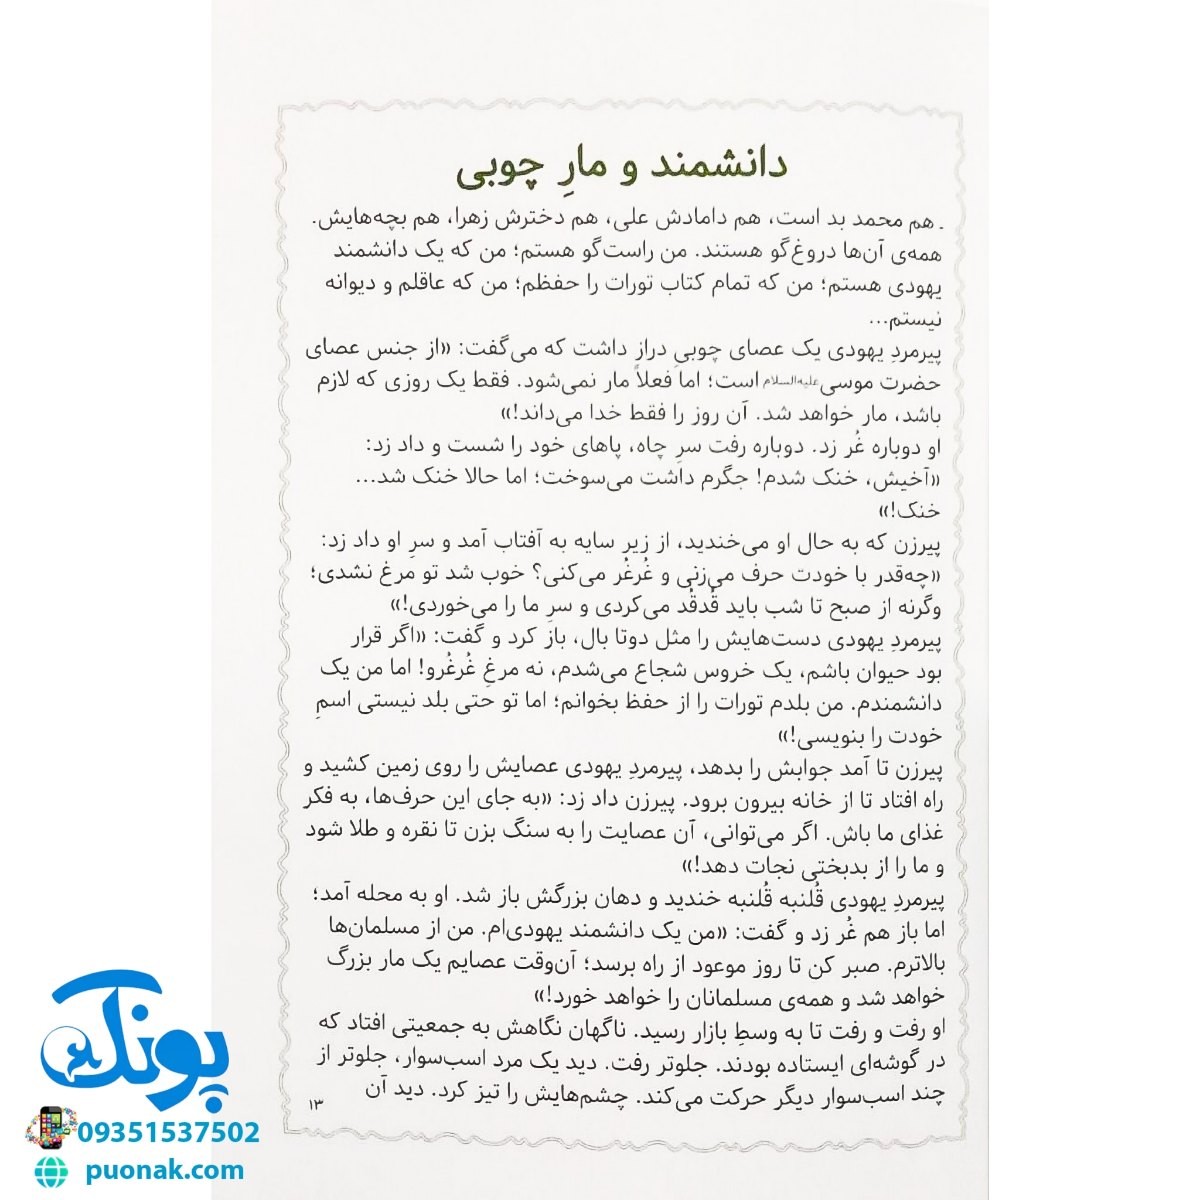 دانشمند و مارِ چوبی
ـ هم محمد بد است، هم دامادش علی، هم دخترش زهرا، هم بچه‌هایش.
همه‌ی آن‌ها دروغ‌گو هستند. من راست‌گو هستم؛ من که یک دانشمند
یهودی هستم؛ من که تمام کتاب تورات را حفظم؛ من که عاقلم و دیوانه
نیستم...
پیرمردِ یهودی یک عصای چوبیِ دراز داشت که می‌گفت: «از جنس عصای
حضرت موسی علیه‌السلام است؛ اما فعلاً مار نمی‌شود. فقط یک روزی که لازم
باشد، مار خواهد شد. آن روز را فقط خدا می‌داند!»
او دوباره غُر زد. دوباره رفت سرِ چاه، پاهای خود را شست و داد زد:
«آخیش، خنک شدم! جگرم داشت می‌سوخت؛ اما حالا خنک شد...
خنک!»
پیرزن که به حال او می‌خندید، از زیرِ سایه به آفتاب آمد و سرِ او داد زد:
«چه‌قدر با خودت حرف می‌زنی و غُرغُر می‌کنی؟ خوب شد تو مرغ نشدی؛
وگرنه از صبح تا شب باید قُدقُد می‌کردی و سرِ ما را می‌خوردی!»
پیرمردِ یهودی دست‌هایش را مثل دوتا بال، باز کرد و گفت: «اگر قرار
بود حیوان باشم، یک خروس شجاع می‌شدم، نه مرغِ غُرغُرو! اما من یک
دانشمندم. من بلدم تورات را از حفظ بخوانم؛ اما تو حتی بلد نیستی اسمِ
خودت را بنویسی!»
پیرزن تا آمد جوابش را بدهد، پیرمردِ یهودی عصایش را روی زمین کشید و
راه افتاد تا از خانه بیرون برود. پیرزن داد زد: «به جای این حرف‌ها، به فکر
غذای ما باش. اگر می‌توانی، آن عصایت را به سنگ بزن تا نقره و طلا شود
و ما را از بدبختی نجات دهد!»
پیرمردِ یهودی قُلنبه قُلنبه خندید و دهان بزرگش باز شد. او به محله آمد؛
اما باز هم غُر زد و گفت: «من یک دانشمند یهودی‌ام. من از مسلمان‌ها
بالاترم. صبر کن تا روز موعود از راه برسد؛ آن‌وقت عصایم یک مار بزرگ
خواهد شد و همه‌ی مسلمانان را خواهد خورد!»
او رفت و رفت تا به وسطِ بازار رسید. ناگهان نگاهش به جمعیتی افتاد که
در گوشه‌ای ایستاده بودند. جلوتر رفت. دید یک مرد اسب‌سوار، جلوتر از
چند اسب‌سوار دیگر حرکت می‌کند. چشم‌هایش را تیز کرد. دید آن
۱۳
پونک
09351537502
puonak.com